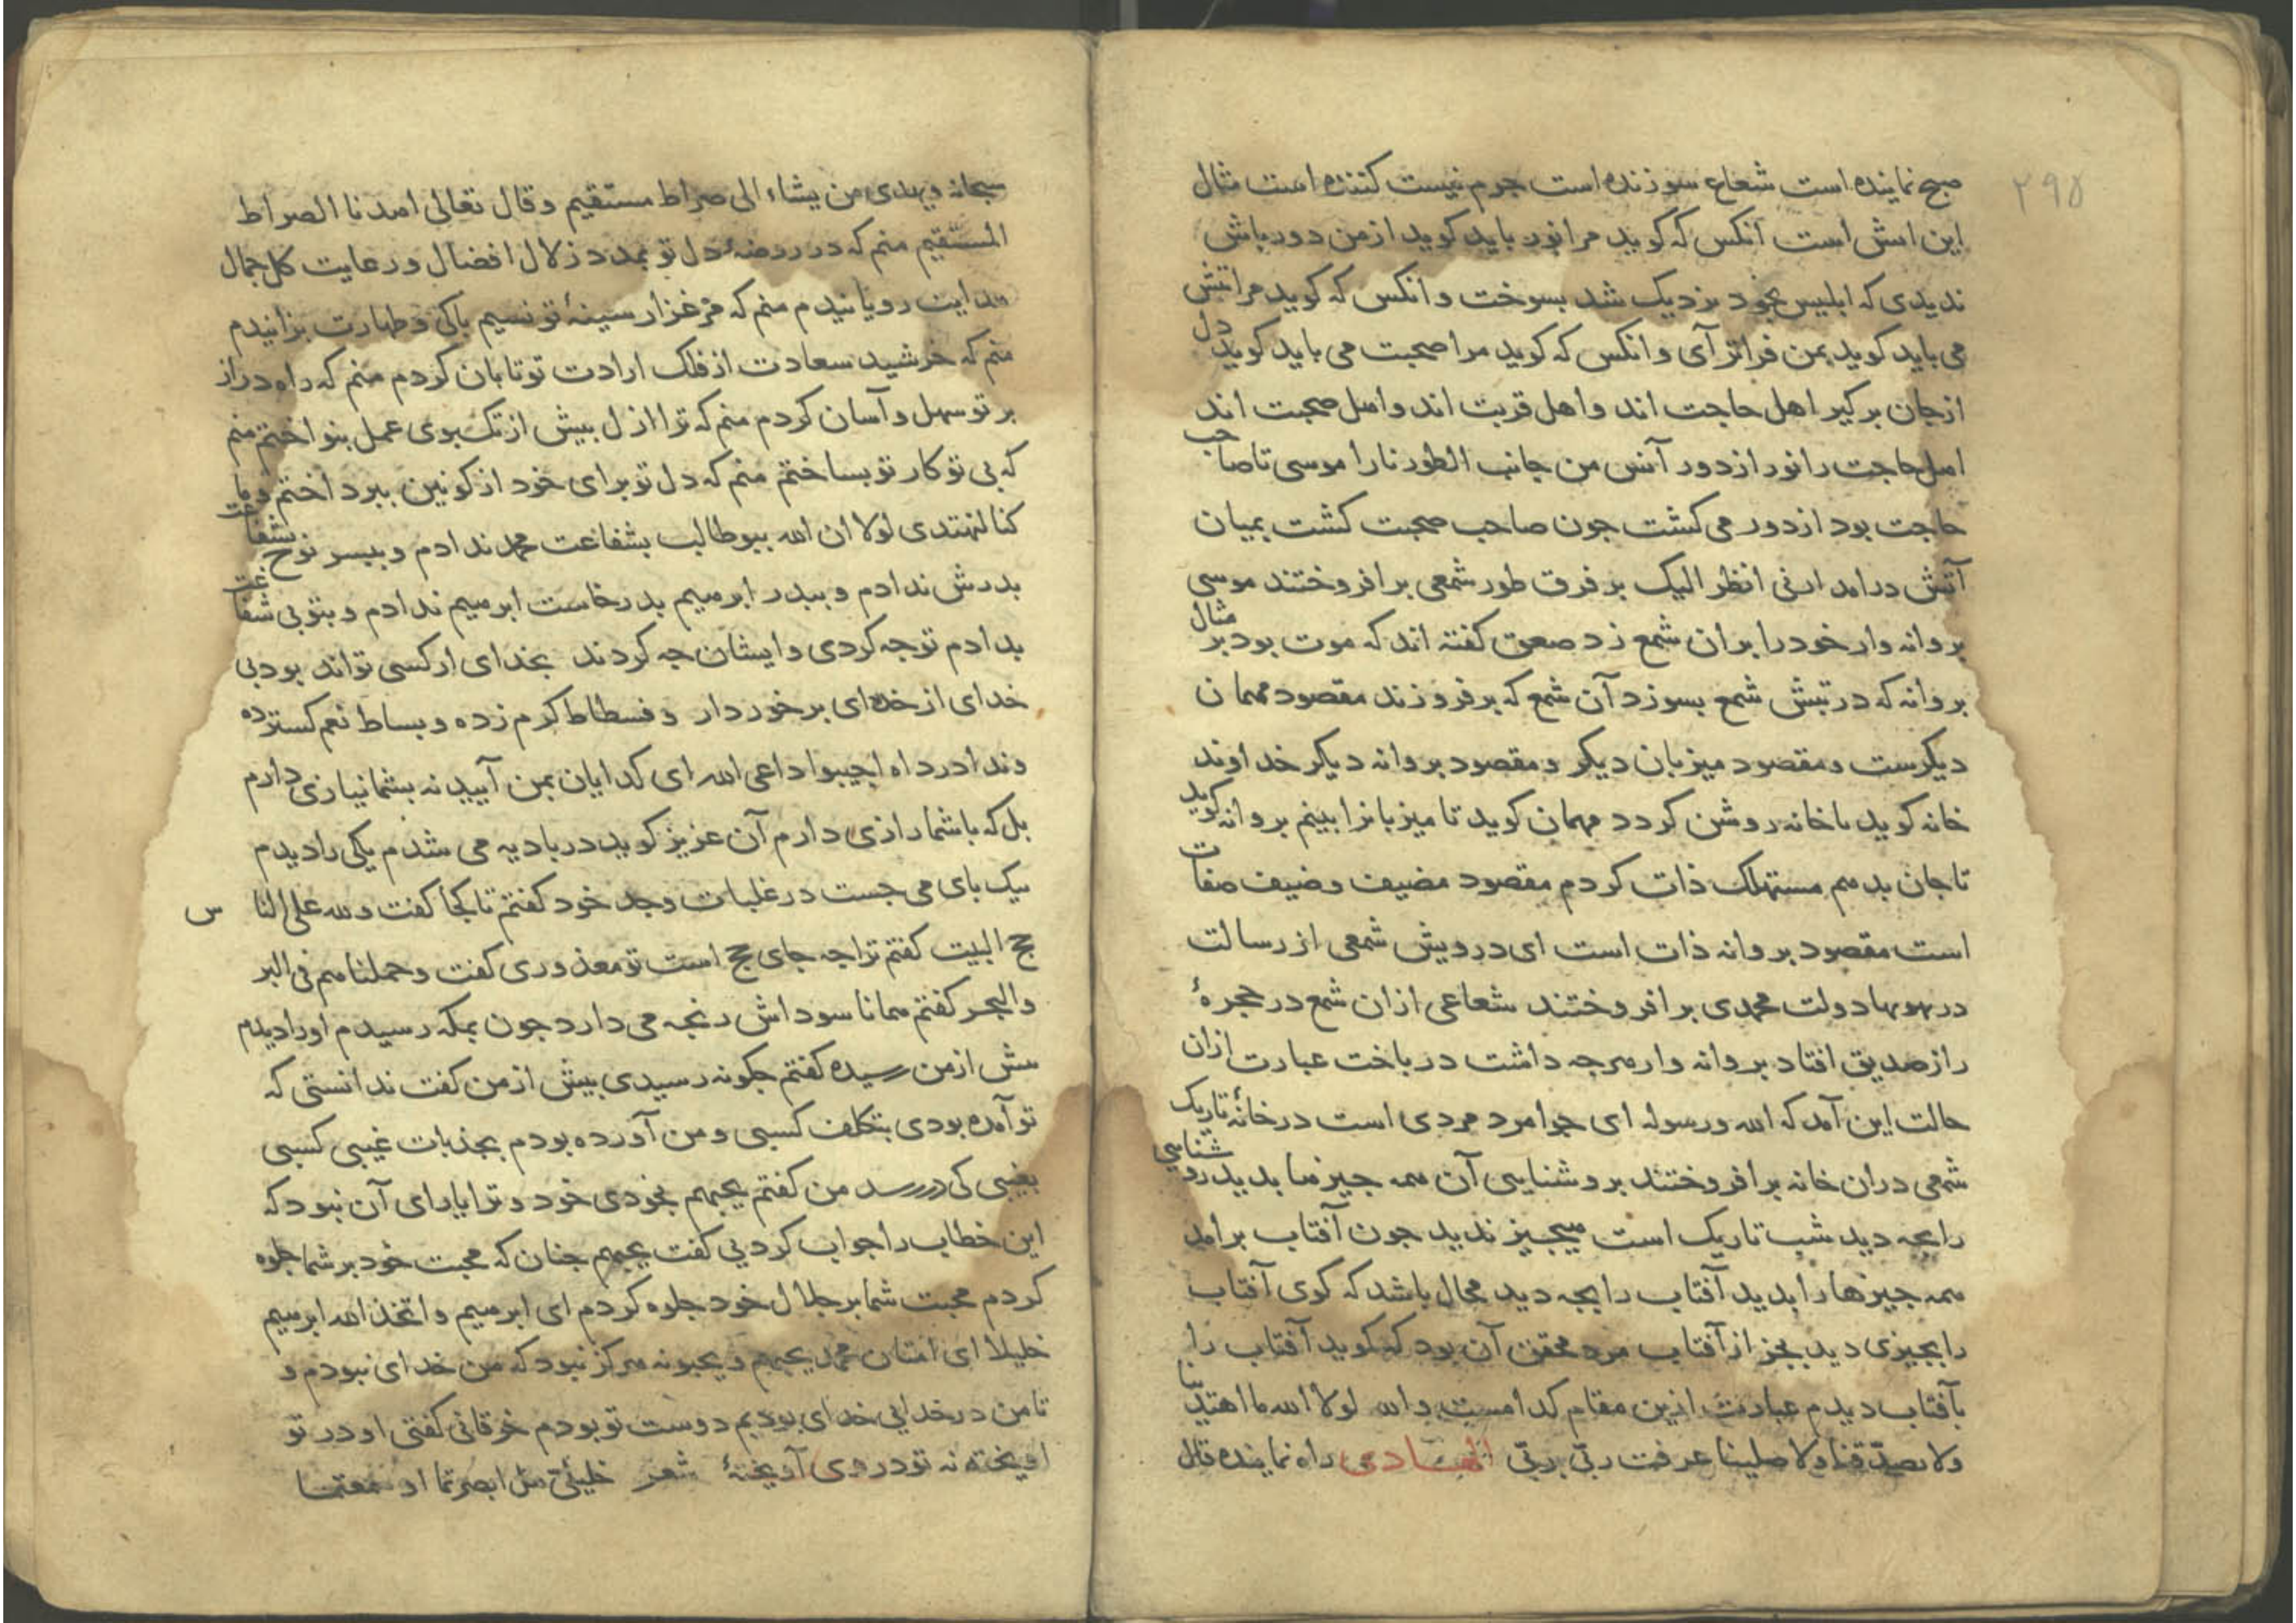 ۲۹۵
صبح نماینده است شعاع سوزنده است جرم نیست کننده است مثال
این آتش است آنکس که کوید مرا نور باید کوید از من دور باش
ندیدی که ابلیس بخود نزدیک شد بسوخت و انکس که کوید مرا تبش
می باید کوید بمن فراتر آی و انکس که کوید مرا صحبت می باید کوید دل
از جان برکیر اهل حاجت اند و اهل قربت اند و اهل صحبت اند
اهل حاجت را نور از دور آنس من جانب الطور نارا موسی تا صاحب
حاجت بود از دور می کشت جون صاحب صحبت کشت بمیان
آتش درامد ارنی انظر الیک بر فرق طور شمعی برافروختند موسی
بروانه وار خود را بران شمع زد صعق کفته اند که موت بود بر مثال
بروانه که در تبش شمع بسوزد آن شمع که برفروزند مقصود مهمان
دیکرست و مقصود میزبان دیکر و مقصود بروانه دیکر خداوند
خانه کوید تا خانه روشن کردد مهمان کوید تا میزبانرا بینم بروانه کوید
تا جان بدهم مستهلک ذات کردم مقصود مضیف و ضیف صفات
است مقصود بروانه ذات است ای درویش شمعی از رسالت
در بهو بهاء دولت محمدی برافروختند شعاعی ازان شمع در حجرۀ
راز صدیق افتاد بروانه وار هرجه داشت درباخت عبارت ازان
حالت این آمد که الله ورسوله ای جوامرد مردی است در خانۀ تاریک
شمعی دران خانه برافروختند بروشنایی آن همه جیزها بدید روشنایی
را بجه دید شب تاریک است هیجیز ندید جون آفتاب برامد
همه جیزها را بدید آفتاب را بجه دید محال باشد که کوی آفتاب
را بجیزی دید بجز از آفتاب مرد محقق آن بود که کوید آفتاب را
بآفتاب دیدم عبارت ازین مقام کدامست والله لولا الله ما اهتدینا
ولا تصدّقنا ولا صلینا عرفت ربّی بربّی الهادی راه نماینده قال
سبحانه ویهدی من یشاء الی صراط مستقیم وقال تعالی اهدنا الصراط
المستقیم منم که در روضۀ دل تو بمدد زلال افضال و رعایت کل جمال
هدایت رویانیدم منم که در مرغزار سینۀ تو نسیم باکی و طهارت بزانیدم
منم که خرشید سعادت از فلک ارادت تو تابان کردم منم که راه دراز
بر تو سهل و آسان کردم منم که ترا ازل بیش از تک بوی عمل بنواختم منم
که بی تو کار تو بساختم منم که دل تو برای خود از کونین ببرداختم وما
کنا لنهتدی لولا ان الله ببوطالب بشفاعت محمد ندادم و ببسر نوح بشفاعت
بدرش ندادم و ببدر ابرهیم بدرخاست ابرهیم ندادم و بتو بی شفاعت
بدادم تو جه کردی و ایشان جه کردند بخدای ار کسی تواند بود بی
خدای از خدای برخوردار و فسطاط کرم زده و بساط نعم کسترده
و ندا در داه اجیبوا داعی الله ای کدایان بمن آیید نه بشما نیازی دارم
بل که با شما رازی دارم آن عزیز کوید در بادیه می شدم یکی را دیدم
بیک بای می جست در غلبات وجد خود کفتم تا کجا کفت ولله علی الناس
حج البیت کفتم ترا جه جای حج است تو معذوری کفت وحملناهم فی البر
والبحر کفتم همانا سوداش رنجه می دارد جون بمکه رسیدم او را دیدم
بیش از من رسیده کفتم جکونه رسیدی بیش از من کفت ندانستی که
تو آمده بودی بتکلف کسبی و من آورده بودم بجذبات غیبی کسبی
بغیبی کی دررسد من کفتم یحبهم بخودی خود و ترا یارای آن نبود که
این خطاب را جواب کردیی کفت یحبهم جنان که محبت خود بر شما جلوه
کردم محبت شما بر جلال خود جلوه کردم ای ابرهیم واتخذ الله ابرهیم
خلیلا ای امتان محمد یحبهم ویحبونه هرکز نبود که من خدای نبودم و
تا من در خدایی خدای بودیم دوست تو بودم خرقانی کفتی او در تو
اویخته نه تو در وی آویختۀ شعر خلیلیّ هل ابصرتما او سمعتما